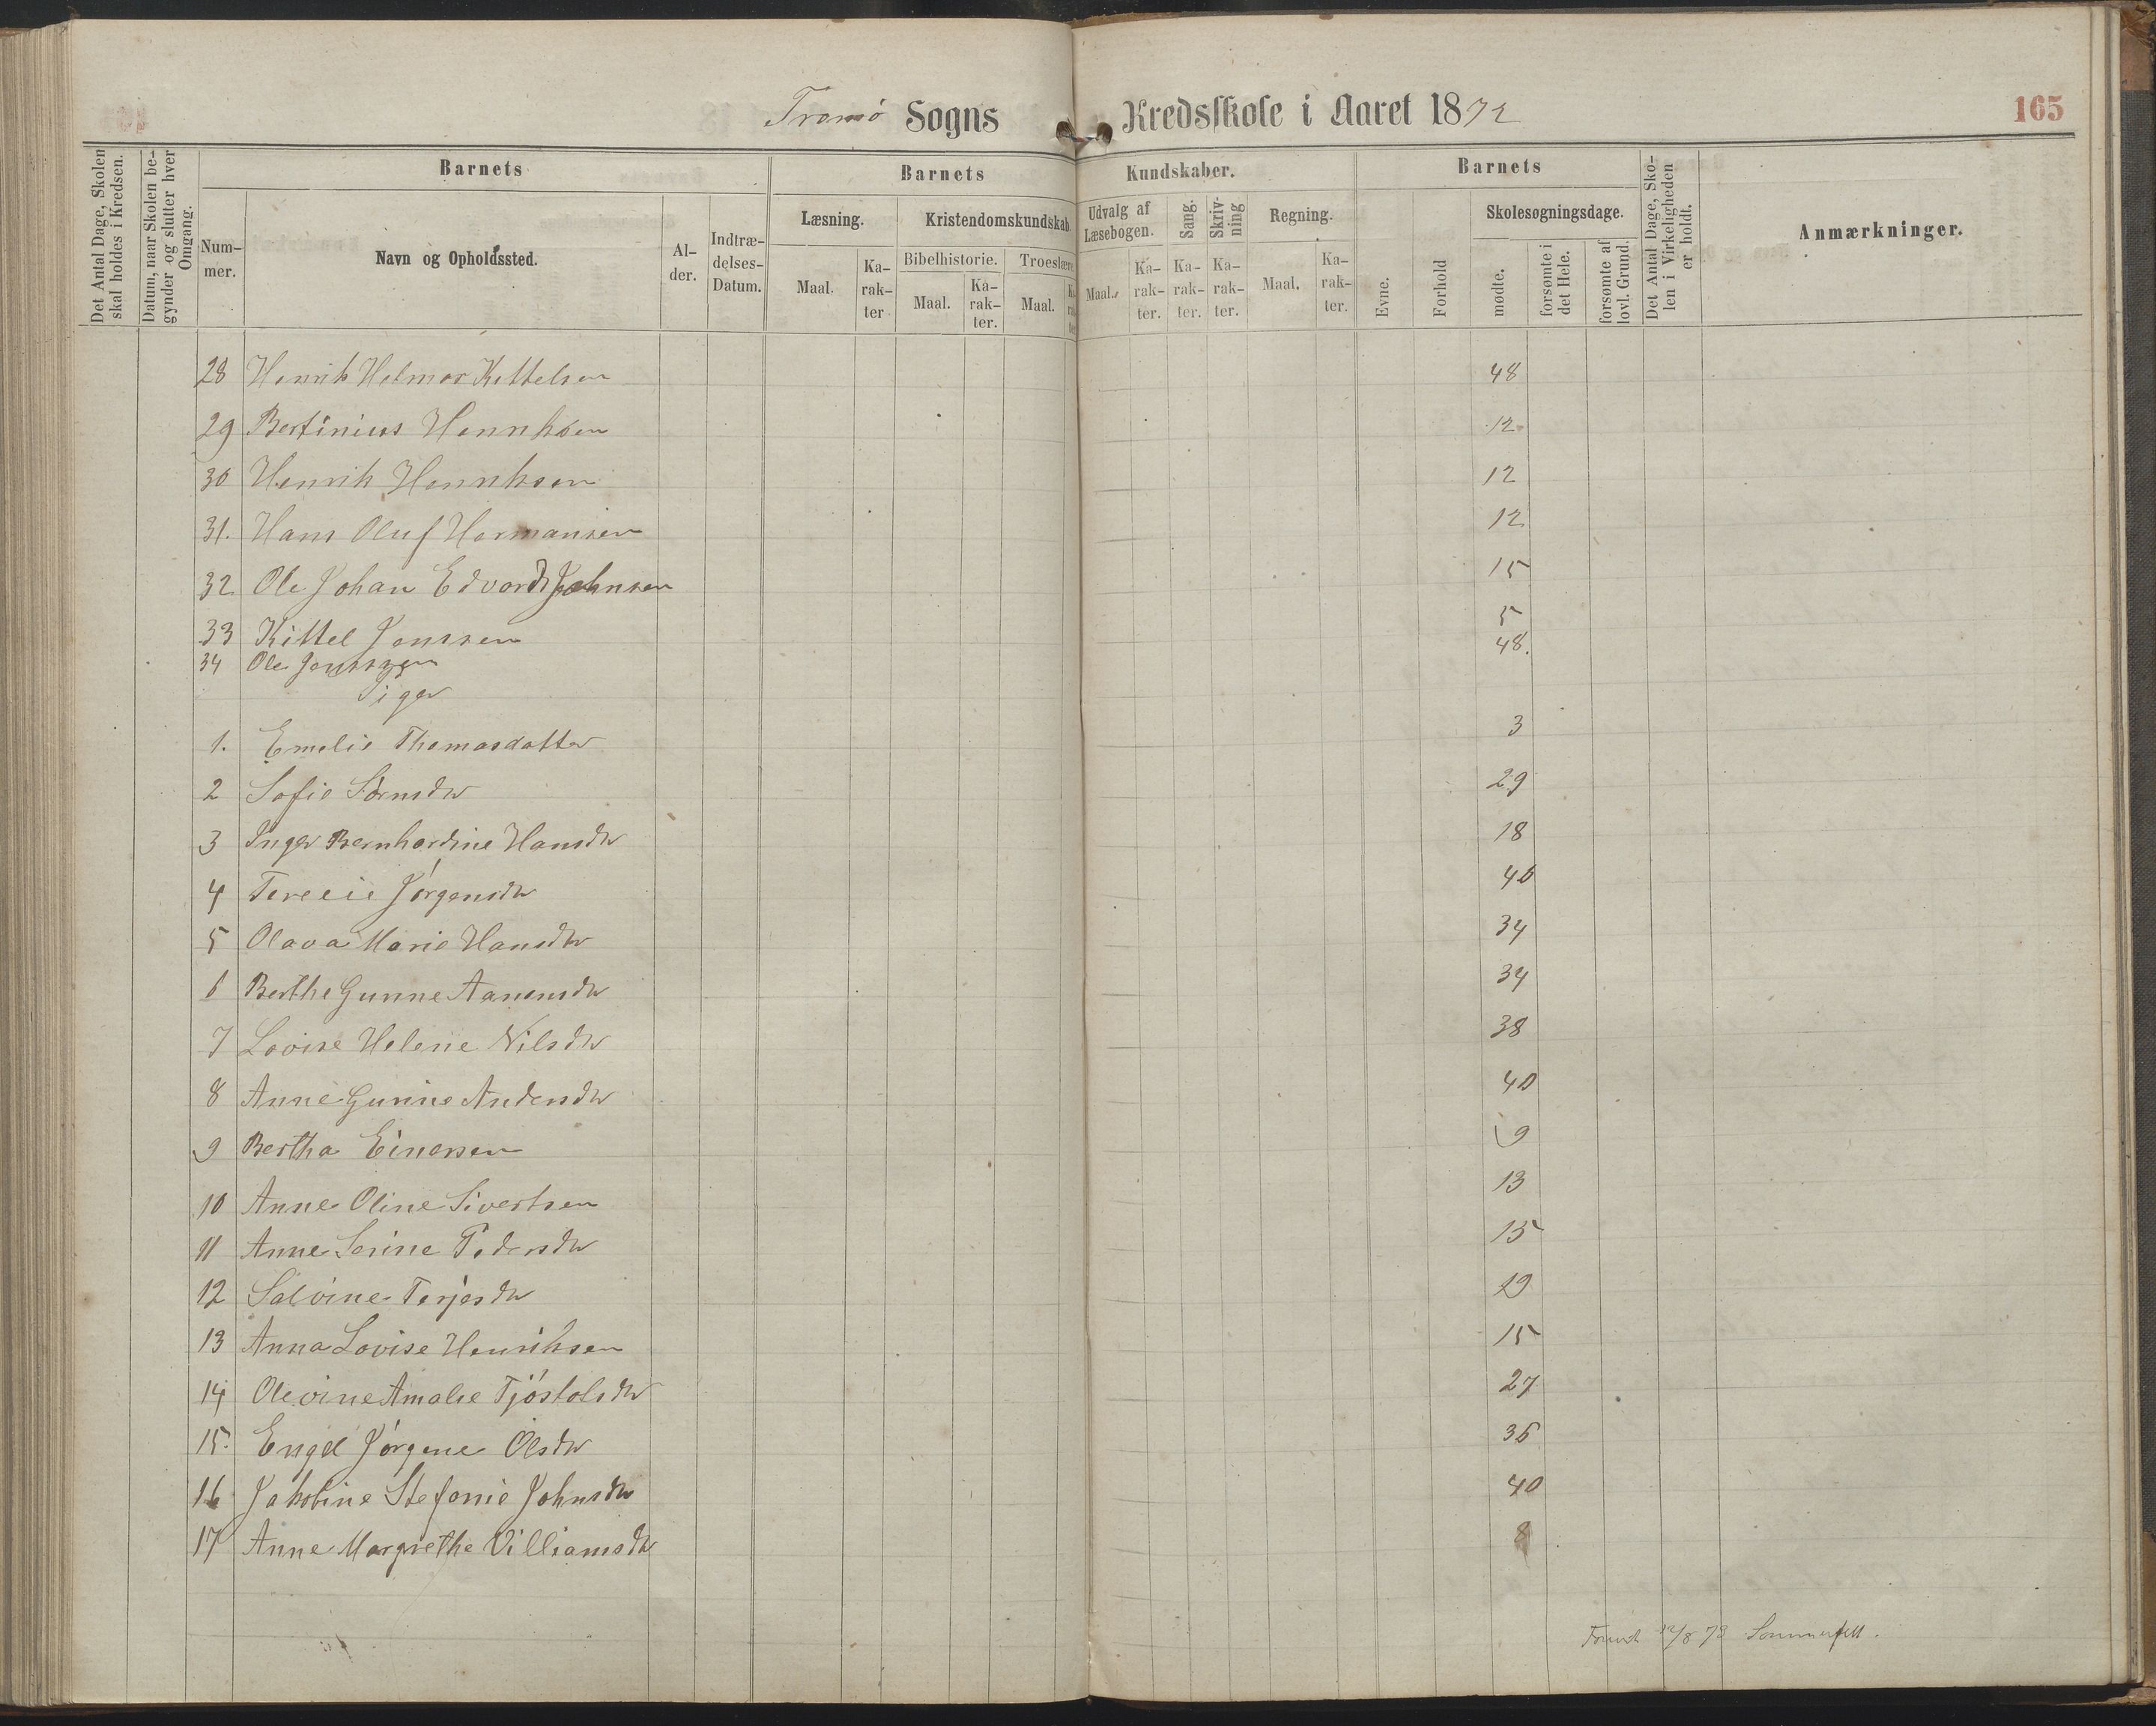 Tromø Sogns Kredsskole i Aaret 1872
165
Det Antal Dage, Skolen skal holdes i Kredsen.
Datum, naar Skolen begynder og slutter hver Omgang.
Barnets
Nummer.
Navn og Opholdssted.
Alder.
Indtrædelses-Datum.
Barnets Kundskaber.
Læsning.
Maal.
Karakter
Kristendomskundskab.
Bibelhistorie.
Maal.
Karakter.
Troeslære.
Maal.
Udvalg af Læsebogen.
Maal.
Karakter.
Sang.
Karakter.
Skrivning
Karakter.
Regning.
Maal.
Karakter.
Barnets
Evne.
Forhold
Skolesøgningsdage.
mødte.
forsømte i det Hele.
forsømte af lovl. Grund.
Det Antal Dage, Skolen i Virkeligheden er holdt.
Anmærkninger.
28 Henrik Helmer Kittelsen 48
29 Bertinius Henriksen 12
30 Henrik Henriksen 12
31. Hans Oluf Hermansen 12
32 Ole Johan Edvard Johnsen 15
33 Kittel Jenssen 5
34 Ole Jenssen 48.
Piger
1. Emelie Thomasdatter 3
2 Sofie Sørnsdtr 29
3 Inger Bernhardine Hansdtr 18
4 Tereeie Jørgensdtr 40
5 Olava Marie Hansdtr 34
6 Berthe Gunne Aanensdtr 34
7 Lovise Helene Nilsdtr 38
8 Anne Gurine Andersdtr 40
9 Bertha Einersen 9
10 Anne Oline Sivertsen 13
11 Anne Serine Pedersdtr 15
12 Salvine Terjesdtr 19
13 Anna Lovise Henriksen 15
14 Olevine Amalie Tjøstolsdtr 27
15. Engel Jørgene Olsdtr 36
16 Jakobine Stefanie Johnsdtr 40
17 Anne Margrethe Villiamsdtr 8
12/8 73 Sommerfelt.